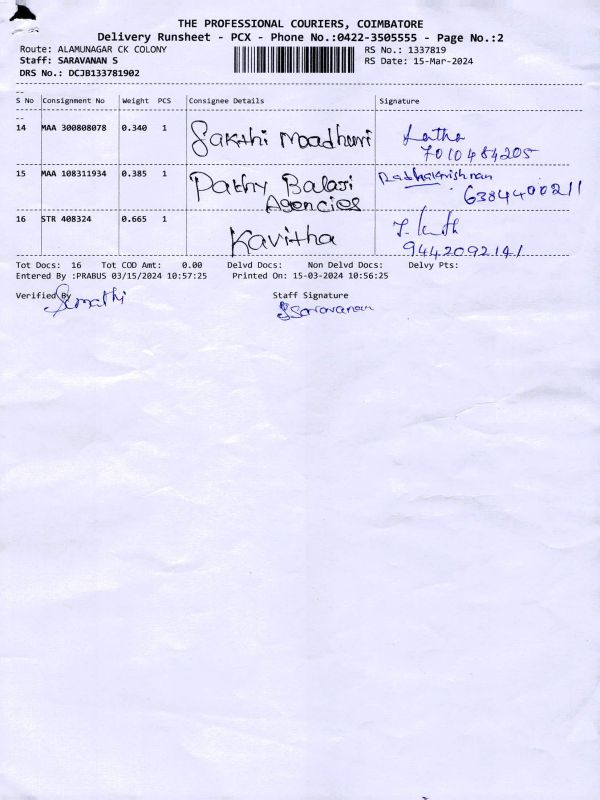 THE PROFESSIONAL COURIERS, COIMBATORE
Delivery Runsheet - PCX - Phone No.:0422-3505555 - Page No.:2
Route: ALAMUNAGAR CK COLONY RS No.: 1337819
Staff: SARAVANAN S RS Date: 15-Mar-2024
DRS No.: DCJB133781902
S No Consignment No Weight PCS Consignee Details Signature
14 MAA 300808078 0.340 1 Sakthi Maadhuri Latha
7010484205
15 MAA 108311934 0.385 1 Pathy Balaji Radhakrishnan
Agencies 6384400211
16 STR 408324 0.665 1 Kavitha
9442092141
Tot Docs: 16 Tot COD Amt: 0.00 Delvd Docs: Non Delvd Docs: Delvy Pts:
Entered By :PRABUS 03/15/2024 10:57:25 Printed On: 15-03-2024 10:56:25
Verified By Staff Signature
S Saravanan